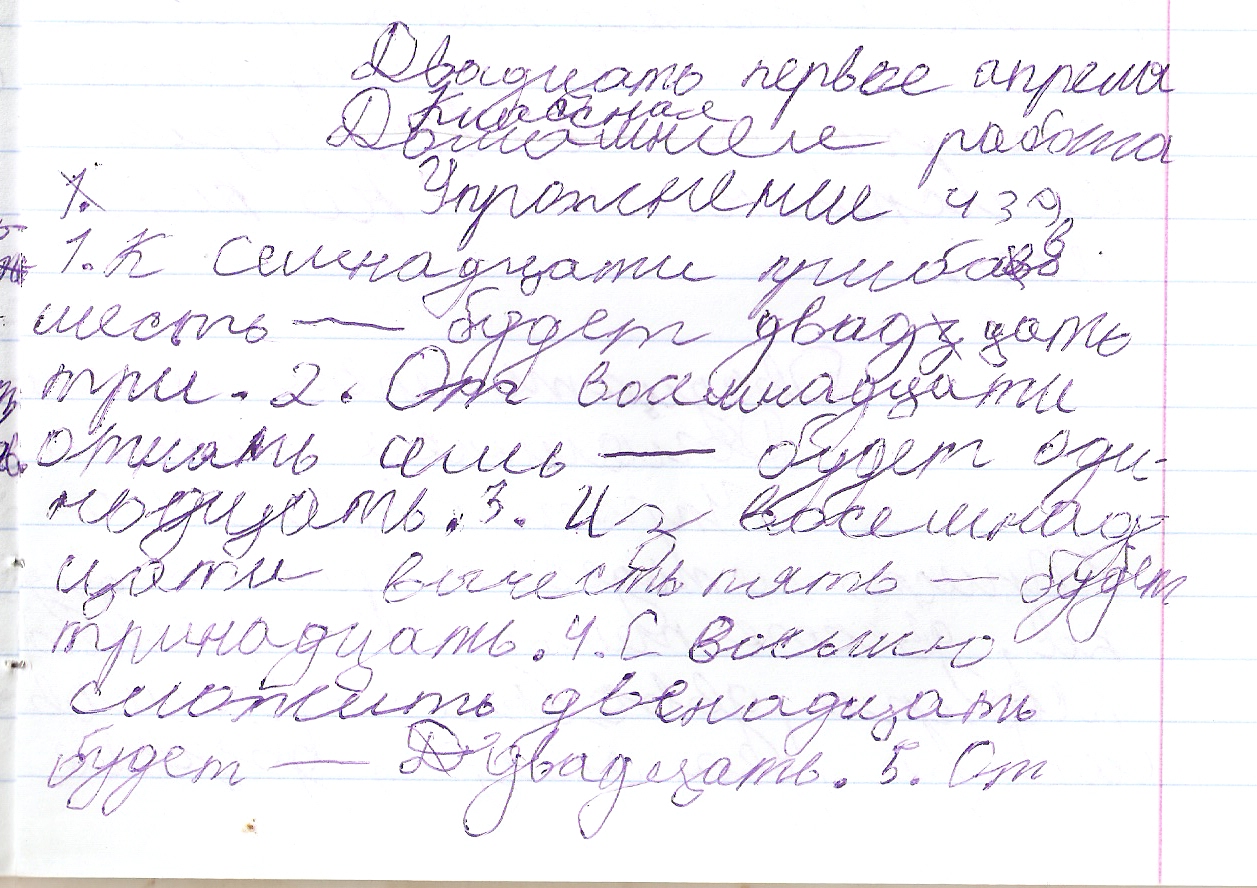 Двадцать первое апреля
Классная
Домашняя работа
Упражнение 439
1.
1. К семнадцати прибавв
шесть — будет двадцать
три. 2. От восемнадцати
отнять семь — будет оди-
надцать. 3. Из восемнад-
цати вычесть пять — будет
тринадцать. 4. С восьмью
сложить двенадцать
будет — двадцать. 5. От